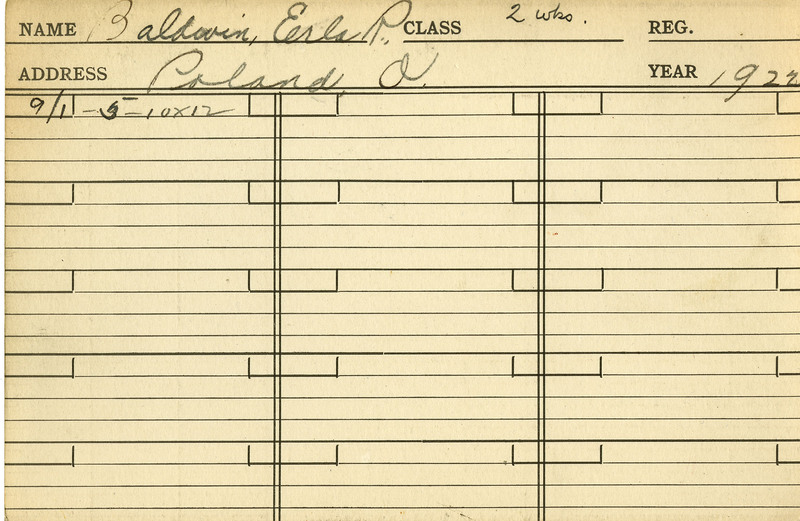 NAME Baldwin, Erla P. CLASS 2 wks. REG.
ADDRESS Poland, O. YEAR 1922
9/1 - 5 - 10X12